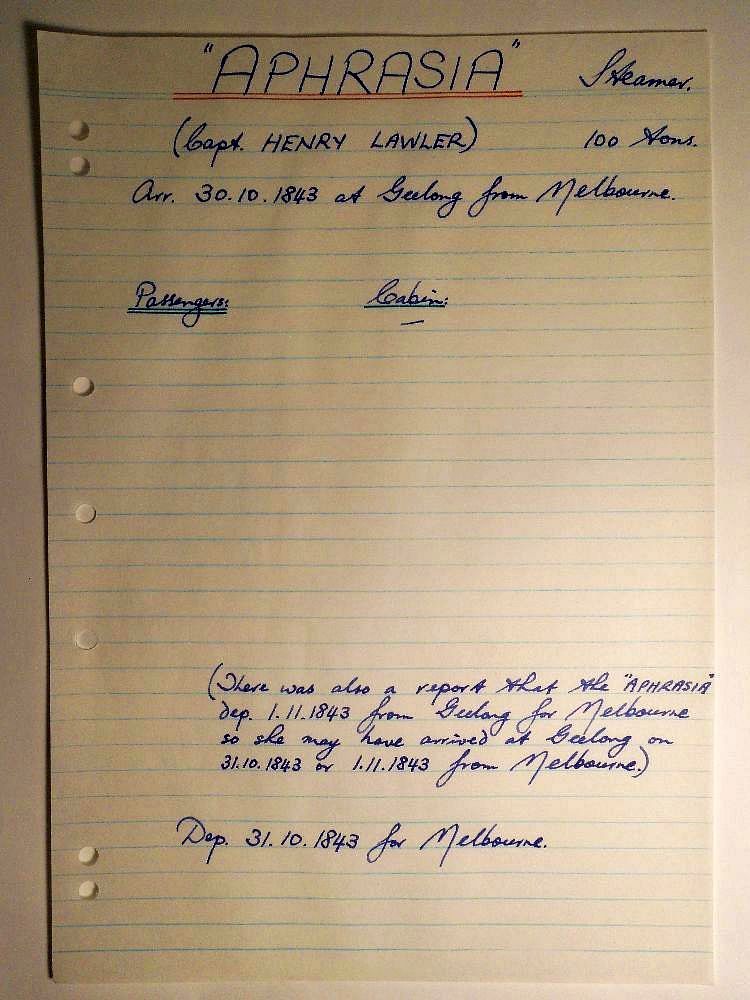 "APHRASIA" Steamer.
(Capt. HENRY LAWLER) 100 tons.
Arr. 30.10.1843 at Geelong from Melbourne.
Passengers: Cabin:
—
(There was also a report that the "APHRASIA"
dep. 1.11.1843 from Geelong for Melbourne
so she may have arrived at Geelong on
31.10.1843 or 1.11.1843 from Melbourne.)
Dep. 31.10.1843 for Melbourne.